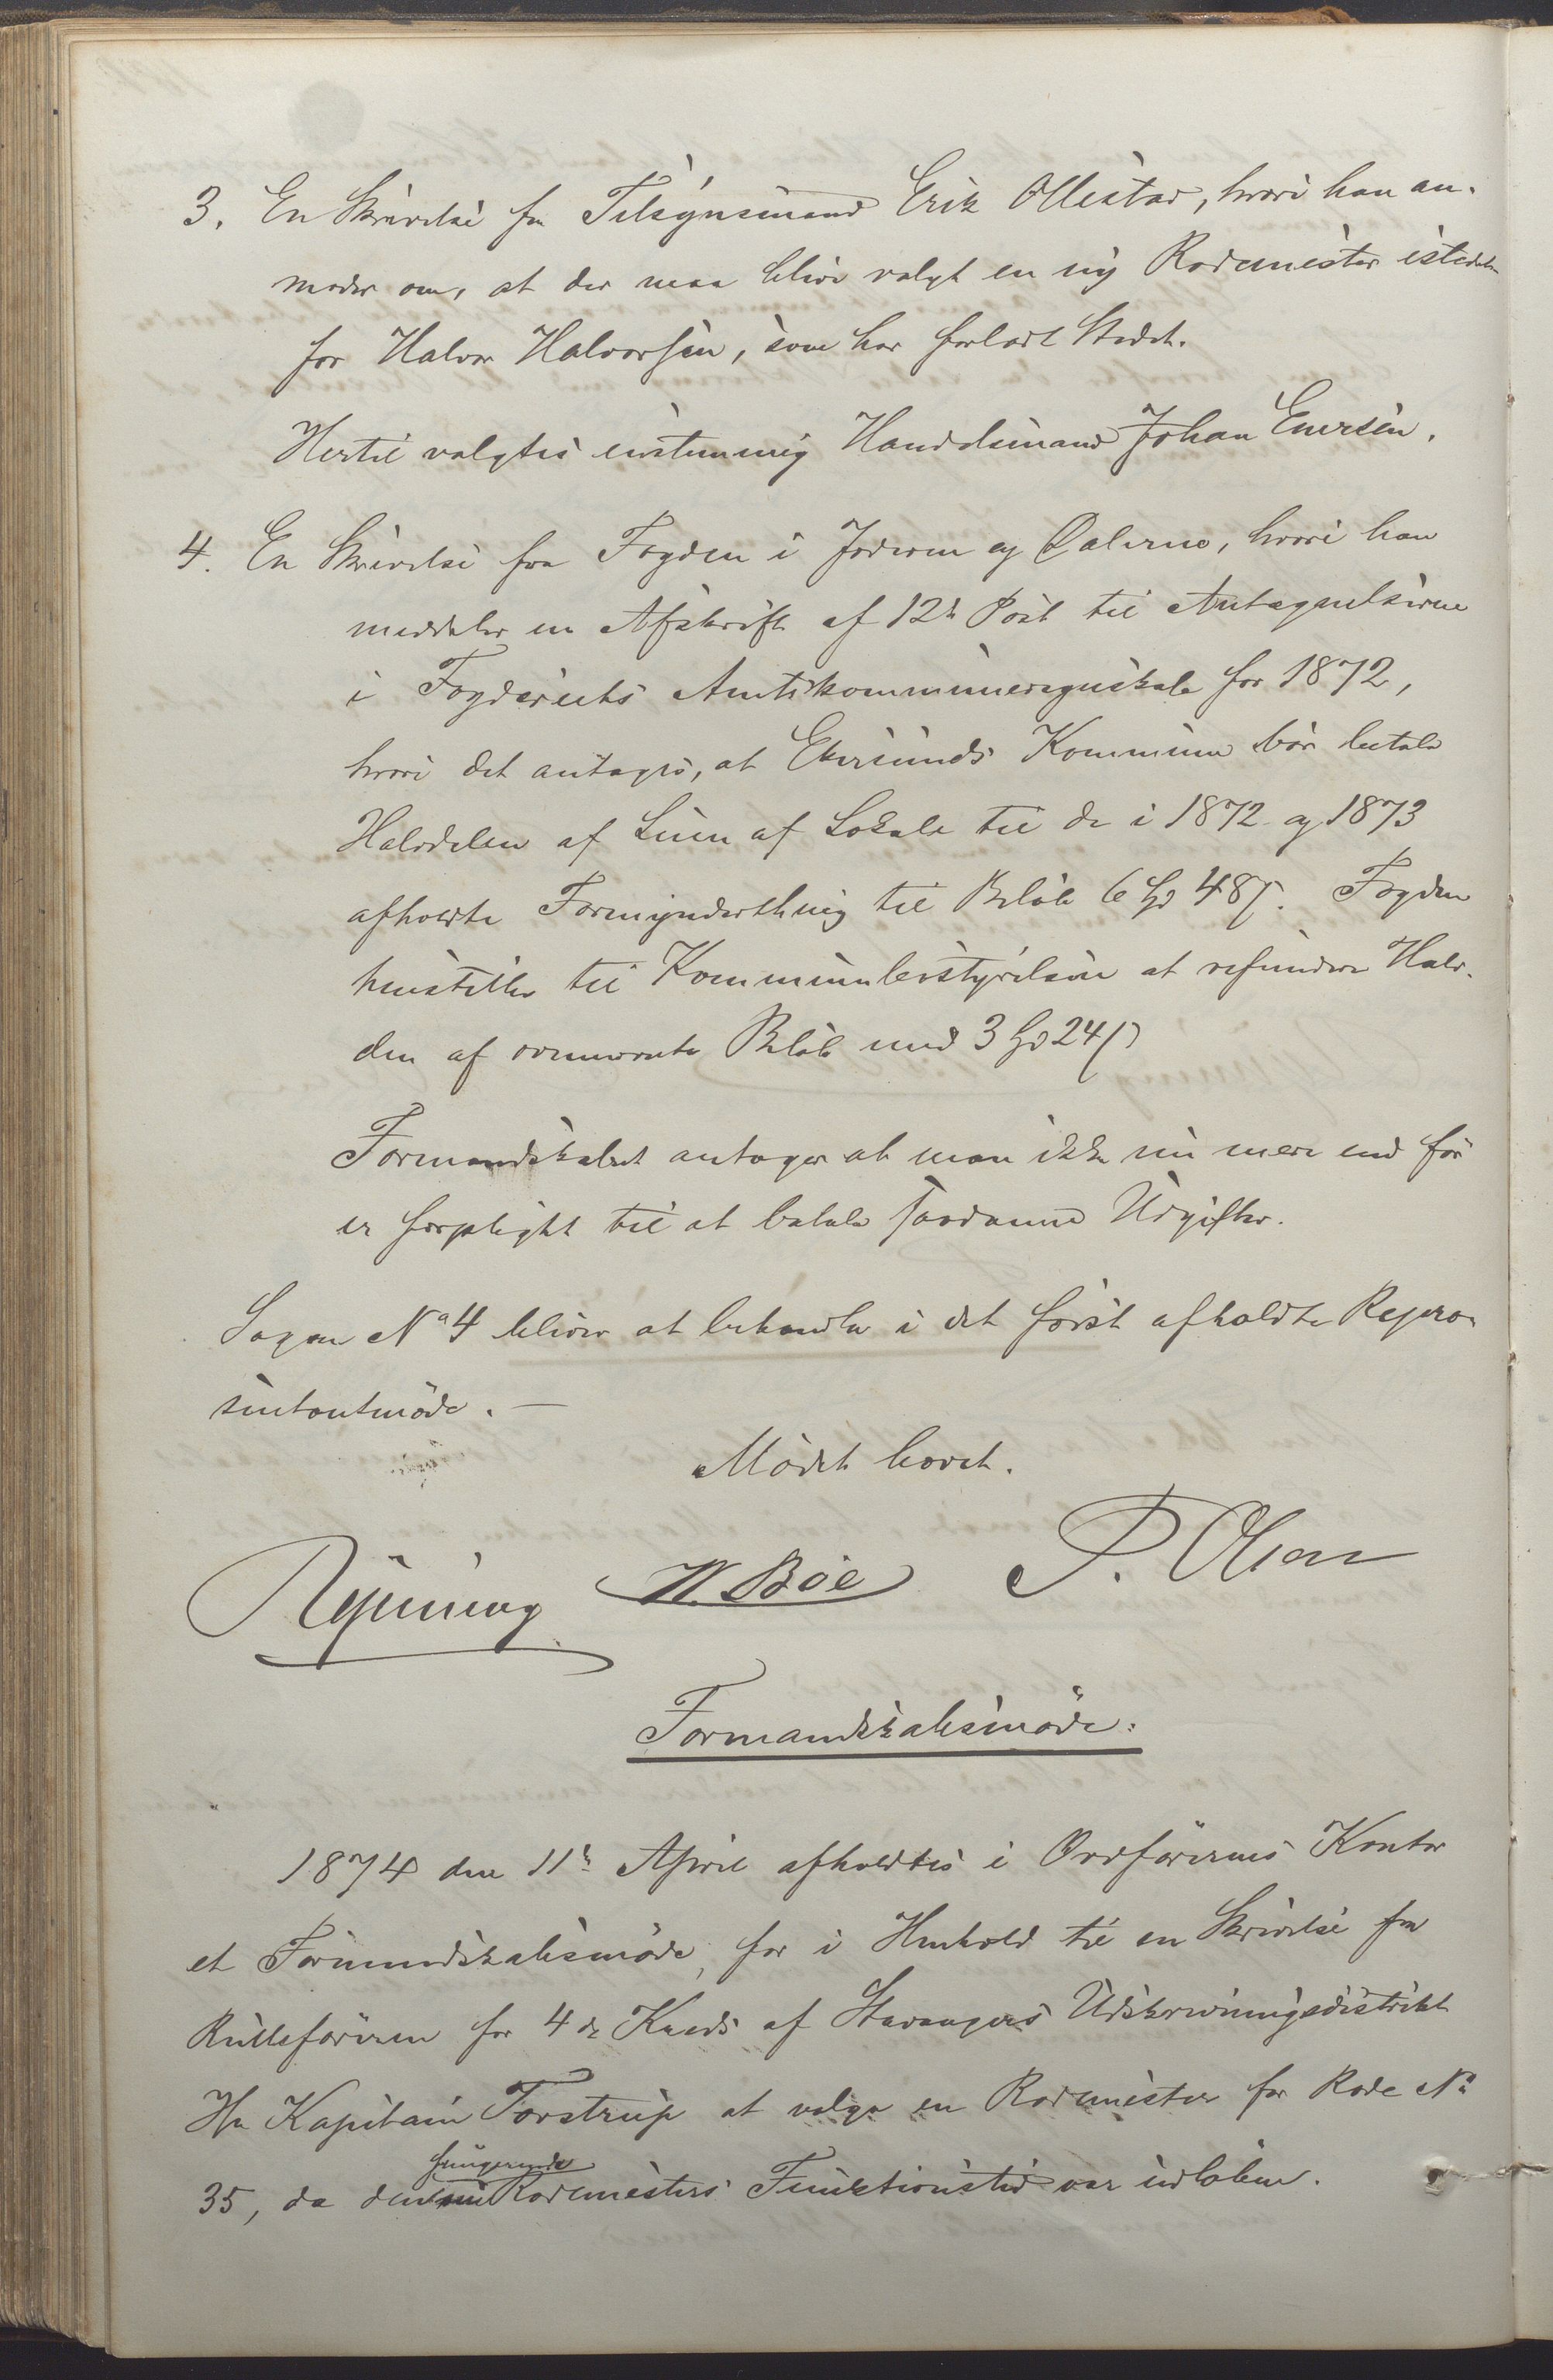 3. En Skrivelse fra Tilsynsmand Erik Ollestad, hvori han an-
moder om, at der maa blive valgt en ny Rodemester istedet
for Halvor Halvorsen, som har forladt Stedet.
Hertil valgtes enstemmig Handelsmand Johan Emersen.
4. En Skrivelse fra Fogden i Jæderen og Dalerne, hvori han
meddeler en Afskrift af 12te Post til Antegnelserne
i Fogderiets Amtskommuneregnskab for 1872,
hvori det antages, at Ekersunds Kommune bør betale
Halvdelen af Leien af Lokale til de i 1872 og 1873
afholdte Formynderthing til Beløb 6 Spd 48 ß. Fogden
henstiller til Kommunebestyrelsen at refundere Halv-
den af ovennævnte Beløb med 3 Spd 24 ß
Formandskabet antager at man ikke nu mere end før
er forpligtet til at betale saadanne Udgifter.
Sagen No 4 bliver at behandle i det først afholdte Repræ-
sentantmøde. —
Mødet hævet.
W. Bøe P. Olsen
Formandskabsmøde.
1874 den 11te April afholdtes i Ordførerens Kontor
et Formandskabsmøde, for i Henhold til en Skrivelse fra
Rulleføreren for 4de Kreds af Stavangers Udskrivningsdistrikt
Hr Kapitain Torstrup at vælge en Rodemester for Rode No
fungerende
35, da den nu Rodemesters Funktionstid var udløben.